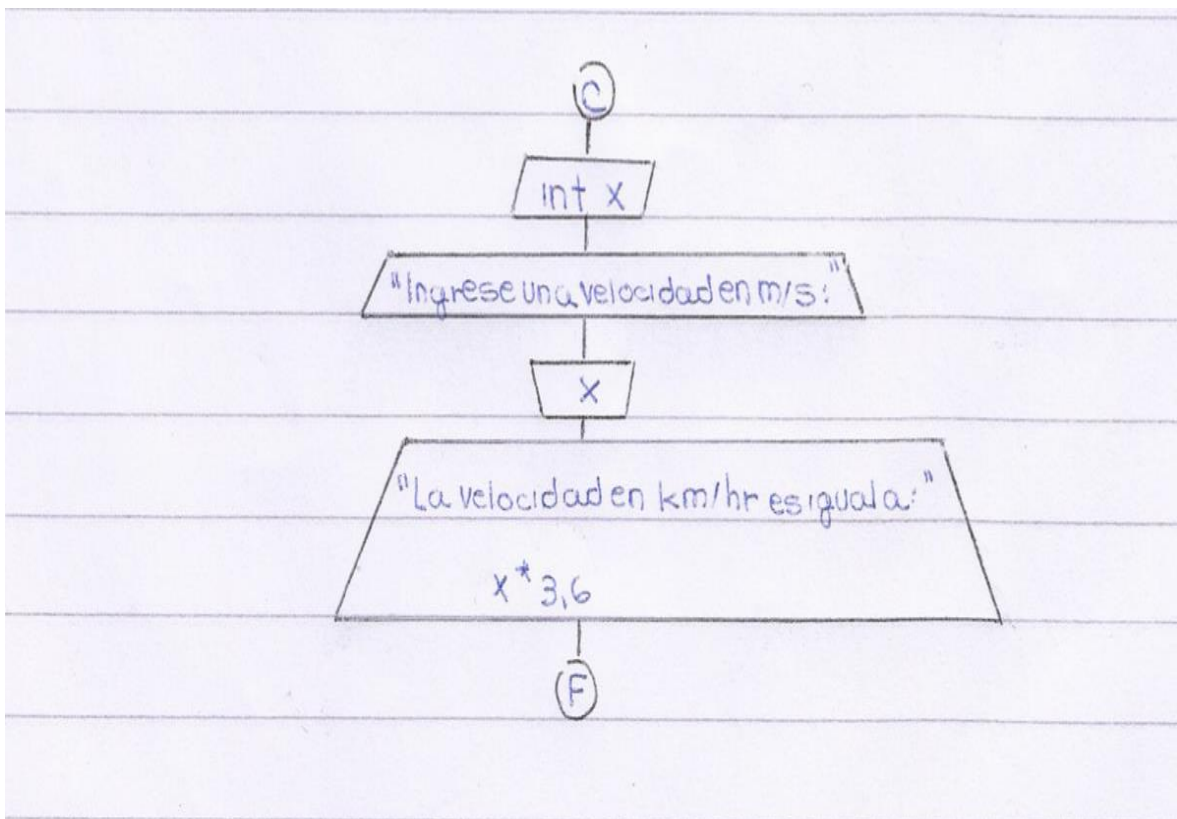 C
int x
"Ingrese una velocidad en m/s:"
x
"La velocidad en km/hr es igual a:"
x*3,6
F